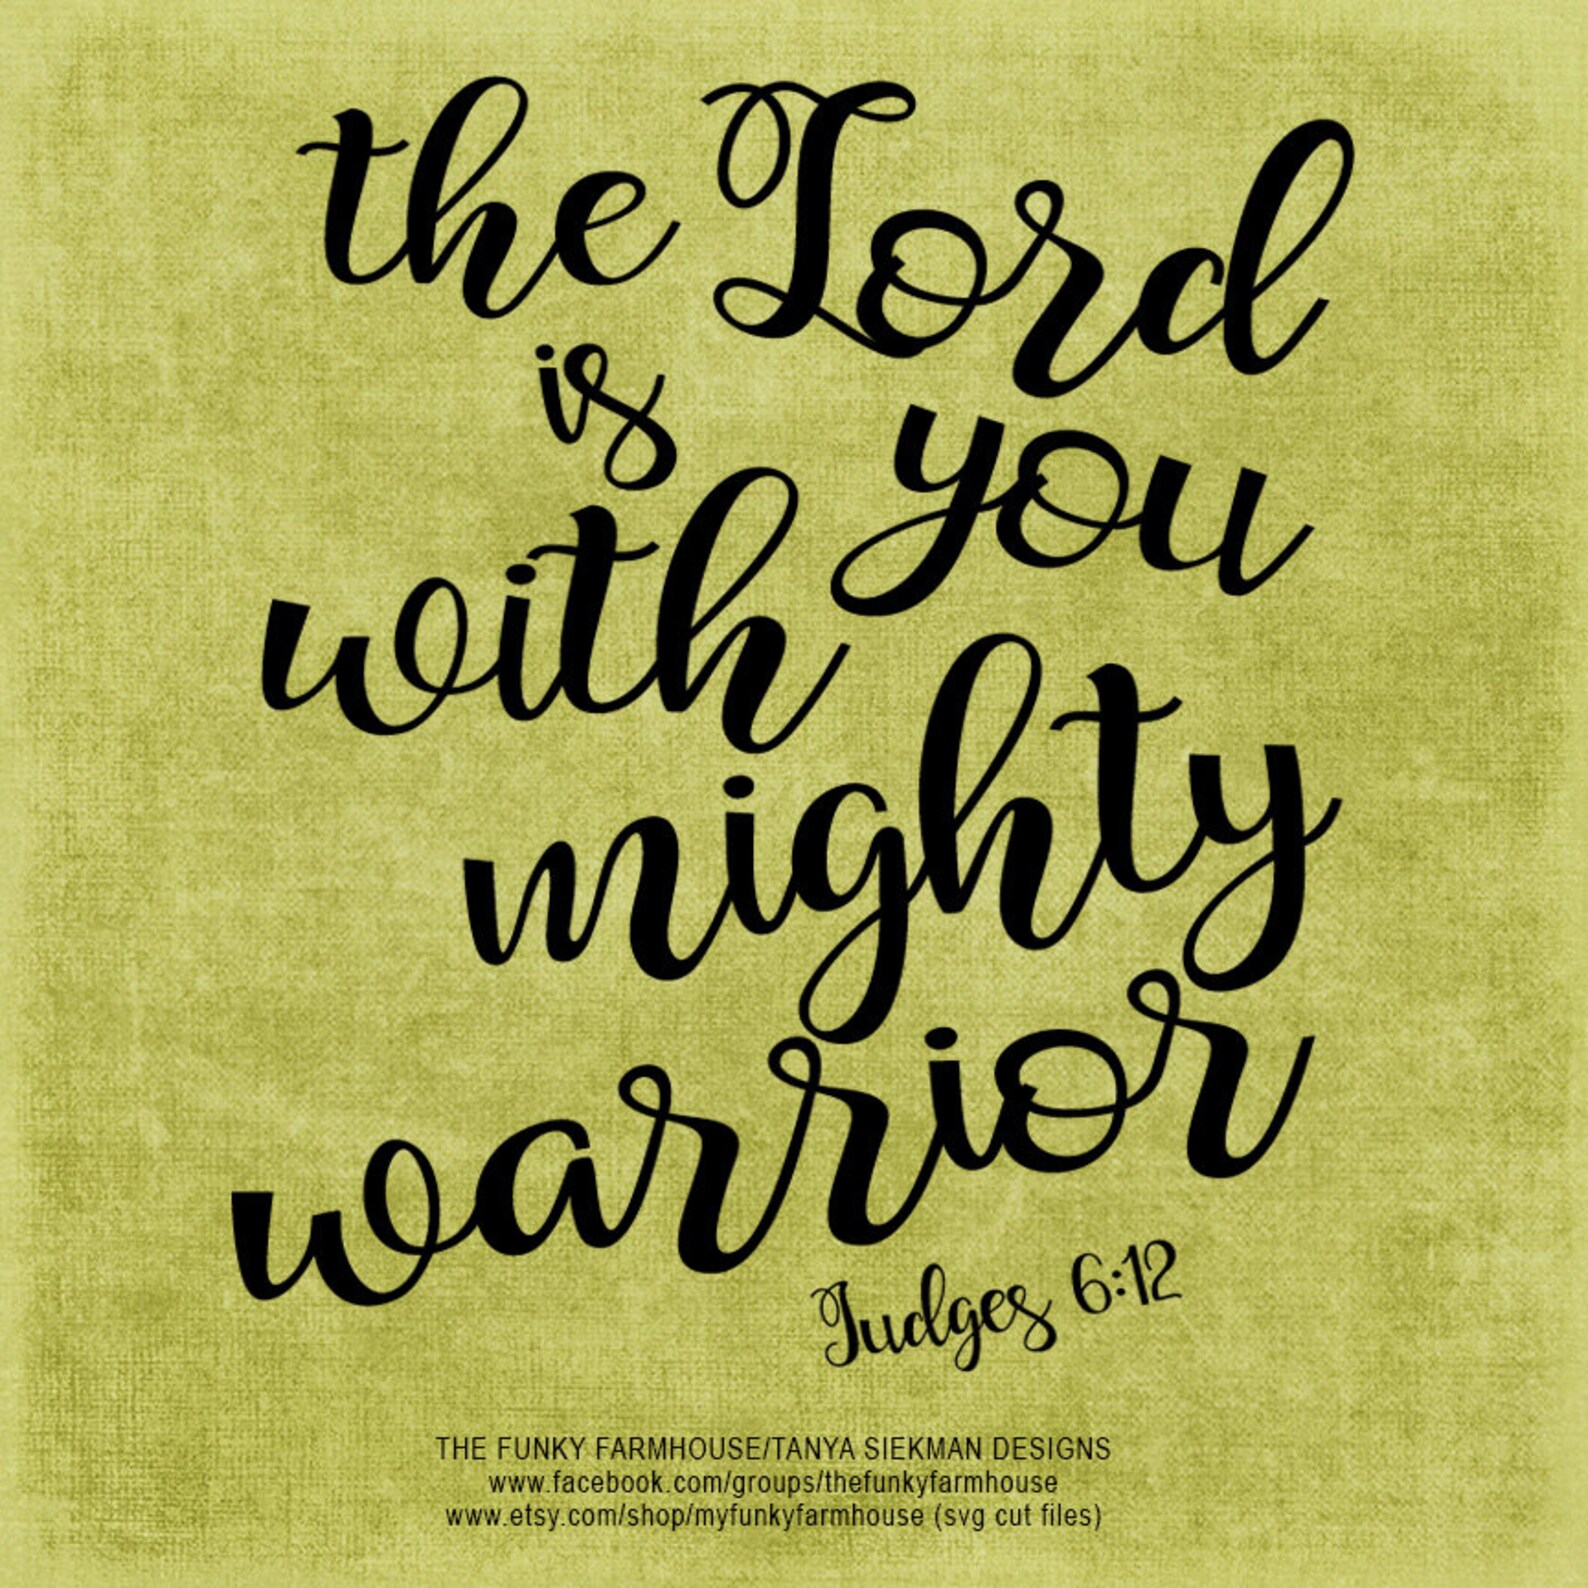 the Lord
is you
with
mighty
warrior
Judges 6:12
THE FUNKY FARMHOUSE/TANYA SIEKMAN DESIGNS
www.facebook.com/groups/thefunkyfarmhouse
www.etsy.com/shop/myfunkyfarmhouse (svg cut files)